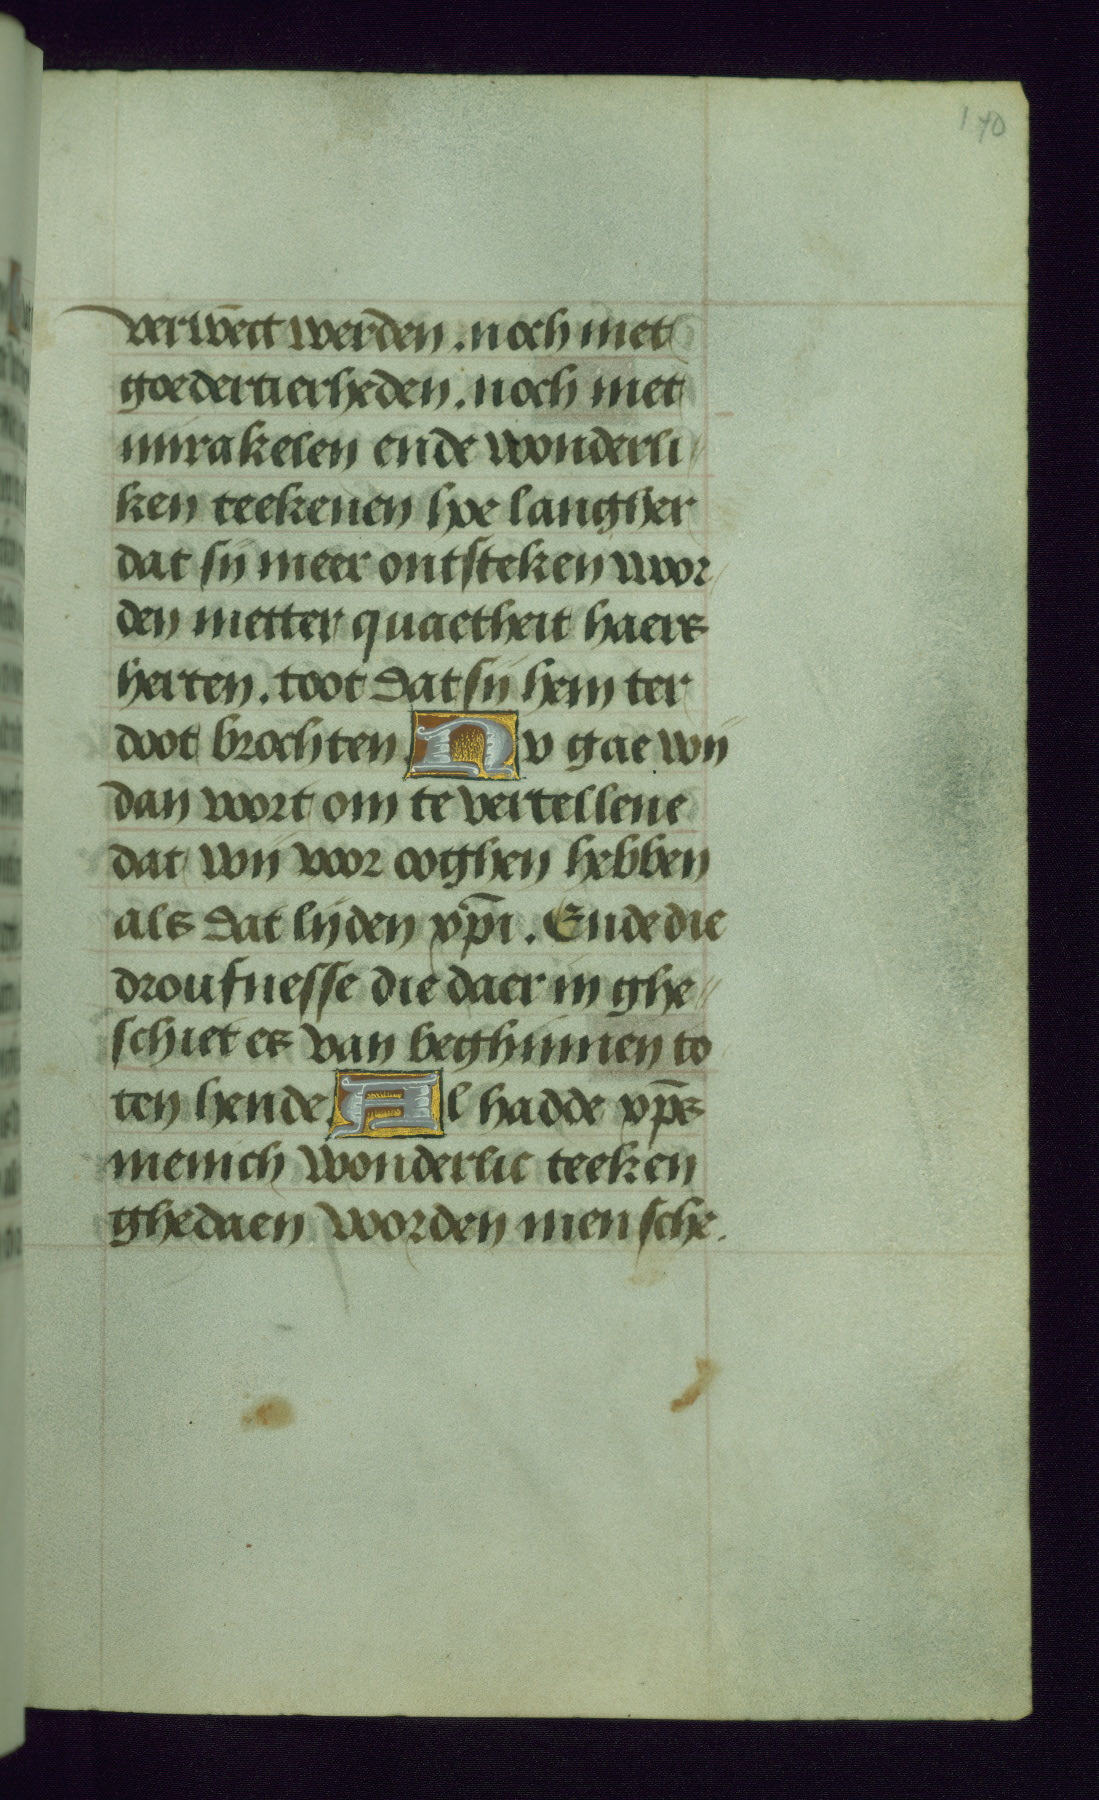 170
verwēct werden. noch met
goedertierheden. noch met
mirakelen ende wonderli
ken teekenen hoe langher
dat sij meer ontsteken wor
den metter quaetheit haers
herten. toot dat sij hem ter
doot brochten. Nv gae wij
dan voort om te vertellene
dat wij voor ooghen hebben
als dat lijden xp̄i. Ende die
droufnesse die daer in ghe
schiet es van beghinnen to
ten hende. Al hadde xp̄s
menich wonderlic teeken
ghedaen voorden mensche.